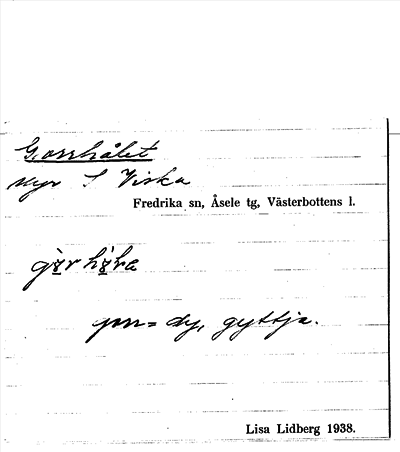 Gorrhålet
myr S Viska
Fredrika sn, Åsele tg, Västerbottens l.
gorr = dy, gyttja.
Lisa Lidberg 1938.